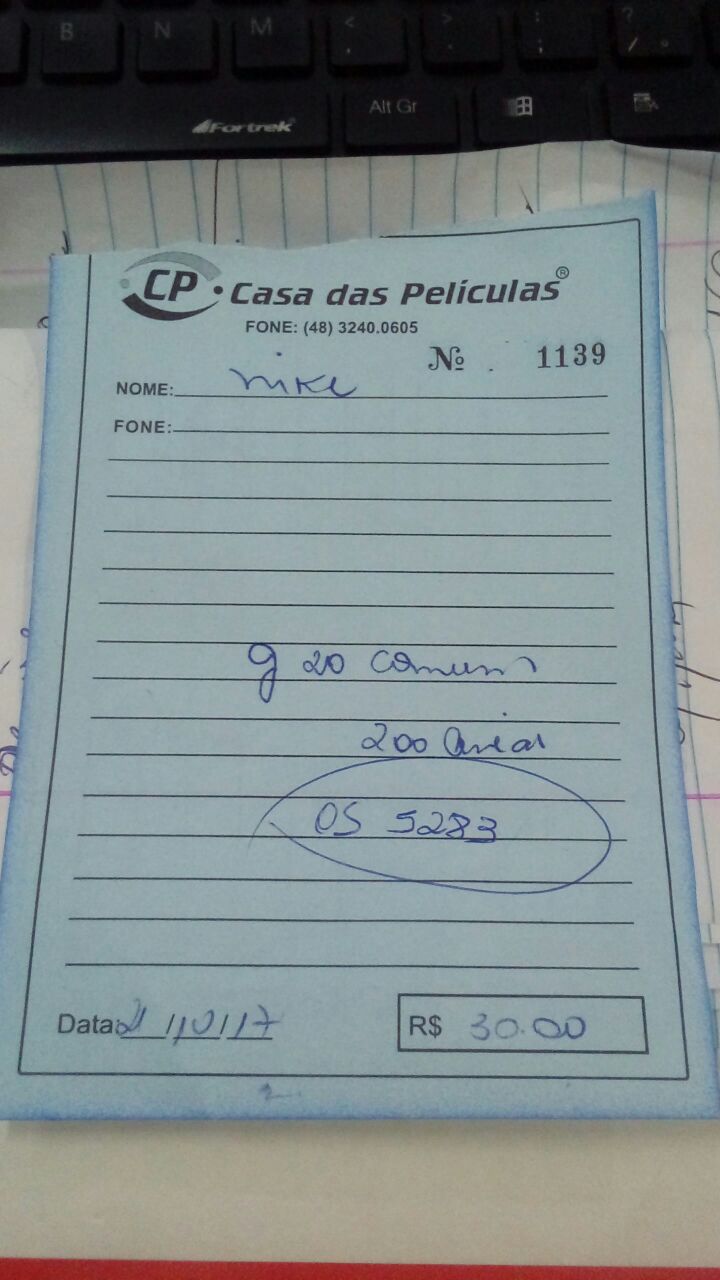 B N M < , > . : ; ? / °
Fortrek
Alt Gr
CP Casa das Películas®
FONE: (48) 3240.0605
Nº 1139
NOME: nike
FONE:
g 20 comum
200
OS 5283
Data: 21/10/17
R$ 30.00